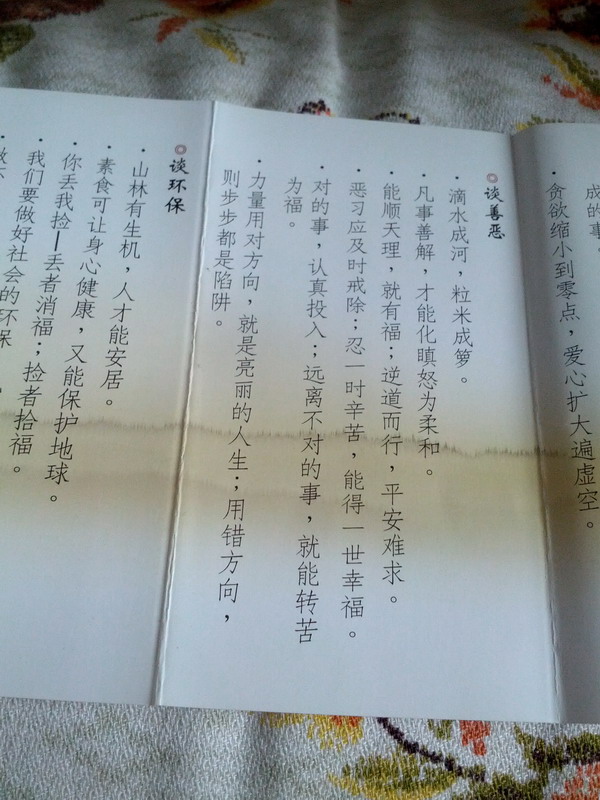 成的事
·贪欲缩小到零点，爱心扩大遍虚空。
谈善恶
·滴水成河，粒米成箩。
·凡事善解，才能化瞋怒为柔和。
·能顺天理，就有福；逆道而行，平安难求。
·恶习应及时戒除；忍一时辛苦，能得一世幸福。
·对的事，认真投入；远离不对的事，就能转苦
为福。
·力量用对方向，就是亮丽的人生；用错方向，
则步步都是陷阱。
谈环保
·山林有生机，人才能安居。
·素食可让身心健康，又能保护地球。
·你丢我捡—丢者消福；捡者拾福。
·我们要做好社会的环保